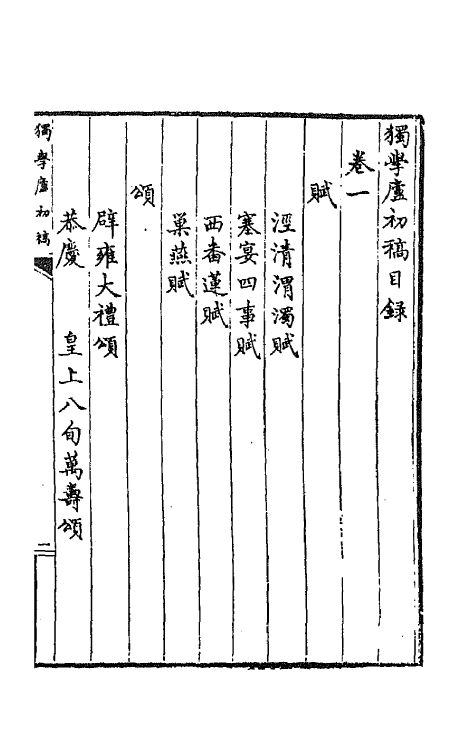 獨學廬初稿目録
卷一
賦
涇清渭濁賦
塞宴四事賦
西番蓮賦
巢燕賦
頌
辟雍大禮頌
恭慶 皇上八旬萬壽頌
獨學廬初稿
一